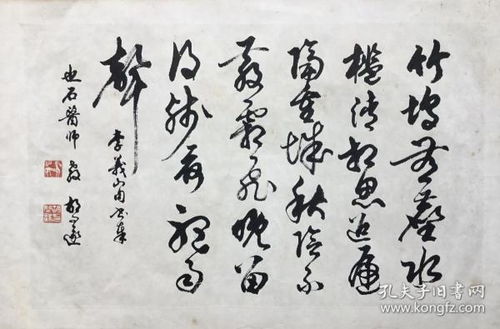 竹塢無塵水
檻清相思迢遞
隔重城秋陰不
散霜飛晚留
得殘荷聽雨
聲
李義山句書奉
也石醫師教
孔夫子旧书网
www.kongfz.com